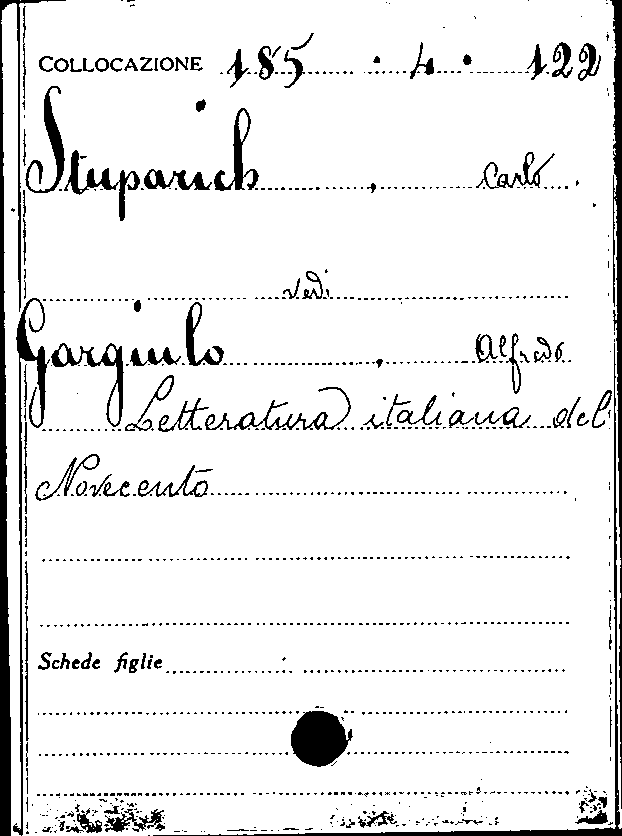 COLLOCAZIONE 185 . 4 . 122
Stuparich , Carlo .
vedi
Gargiulo , Alfredo
Letteratura italiana del
Novecento
Schede figlie